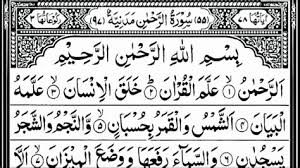 آيَاتُهَا ٧٨ (٥٥) سُوْرَةُ الرَّحْمٰنِ مَدَنِيَّةٌ (٩٧) رُكُوْعَاتُهَا ٣
بِسْمِ اللّٰهِ الرَّحْمٰنِ الرَّحِيْمِ
اَلرَّحْمٰنُ ۙ‏﴿١﴾ عَلَّمَ الْقُرْاٰنَ ؕ‏﴿٢﴾ خَلَقَ الْاِنْسَانَ ۙ‏﴿٣﴾ عَلَّمَهُ
الْبَيَانَ ﴿٤﴾ اَلشَّمْسُ وَالْقَمَرُ بِحُسْبَانٍ ﴿٥﴾ وَّالنَّجْمُ وَالشَّجَرُ
يَسْجُدَانِ ﴿٦﴾ وَالسَّمَآءَ رَفَعَهَا وَوَضَعَ الْمِيْزَانَ ﴿٧﴾ اَلَّا